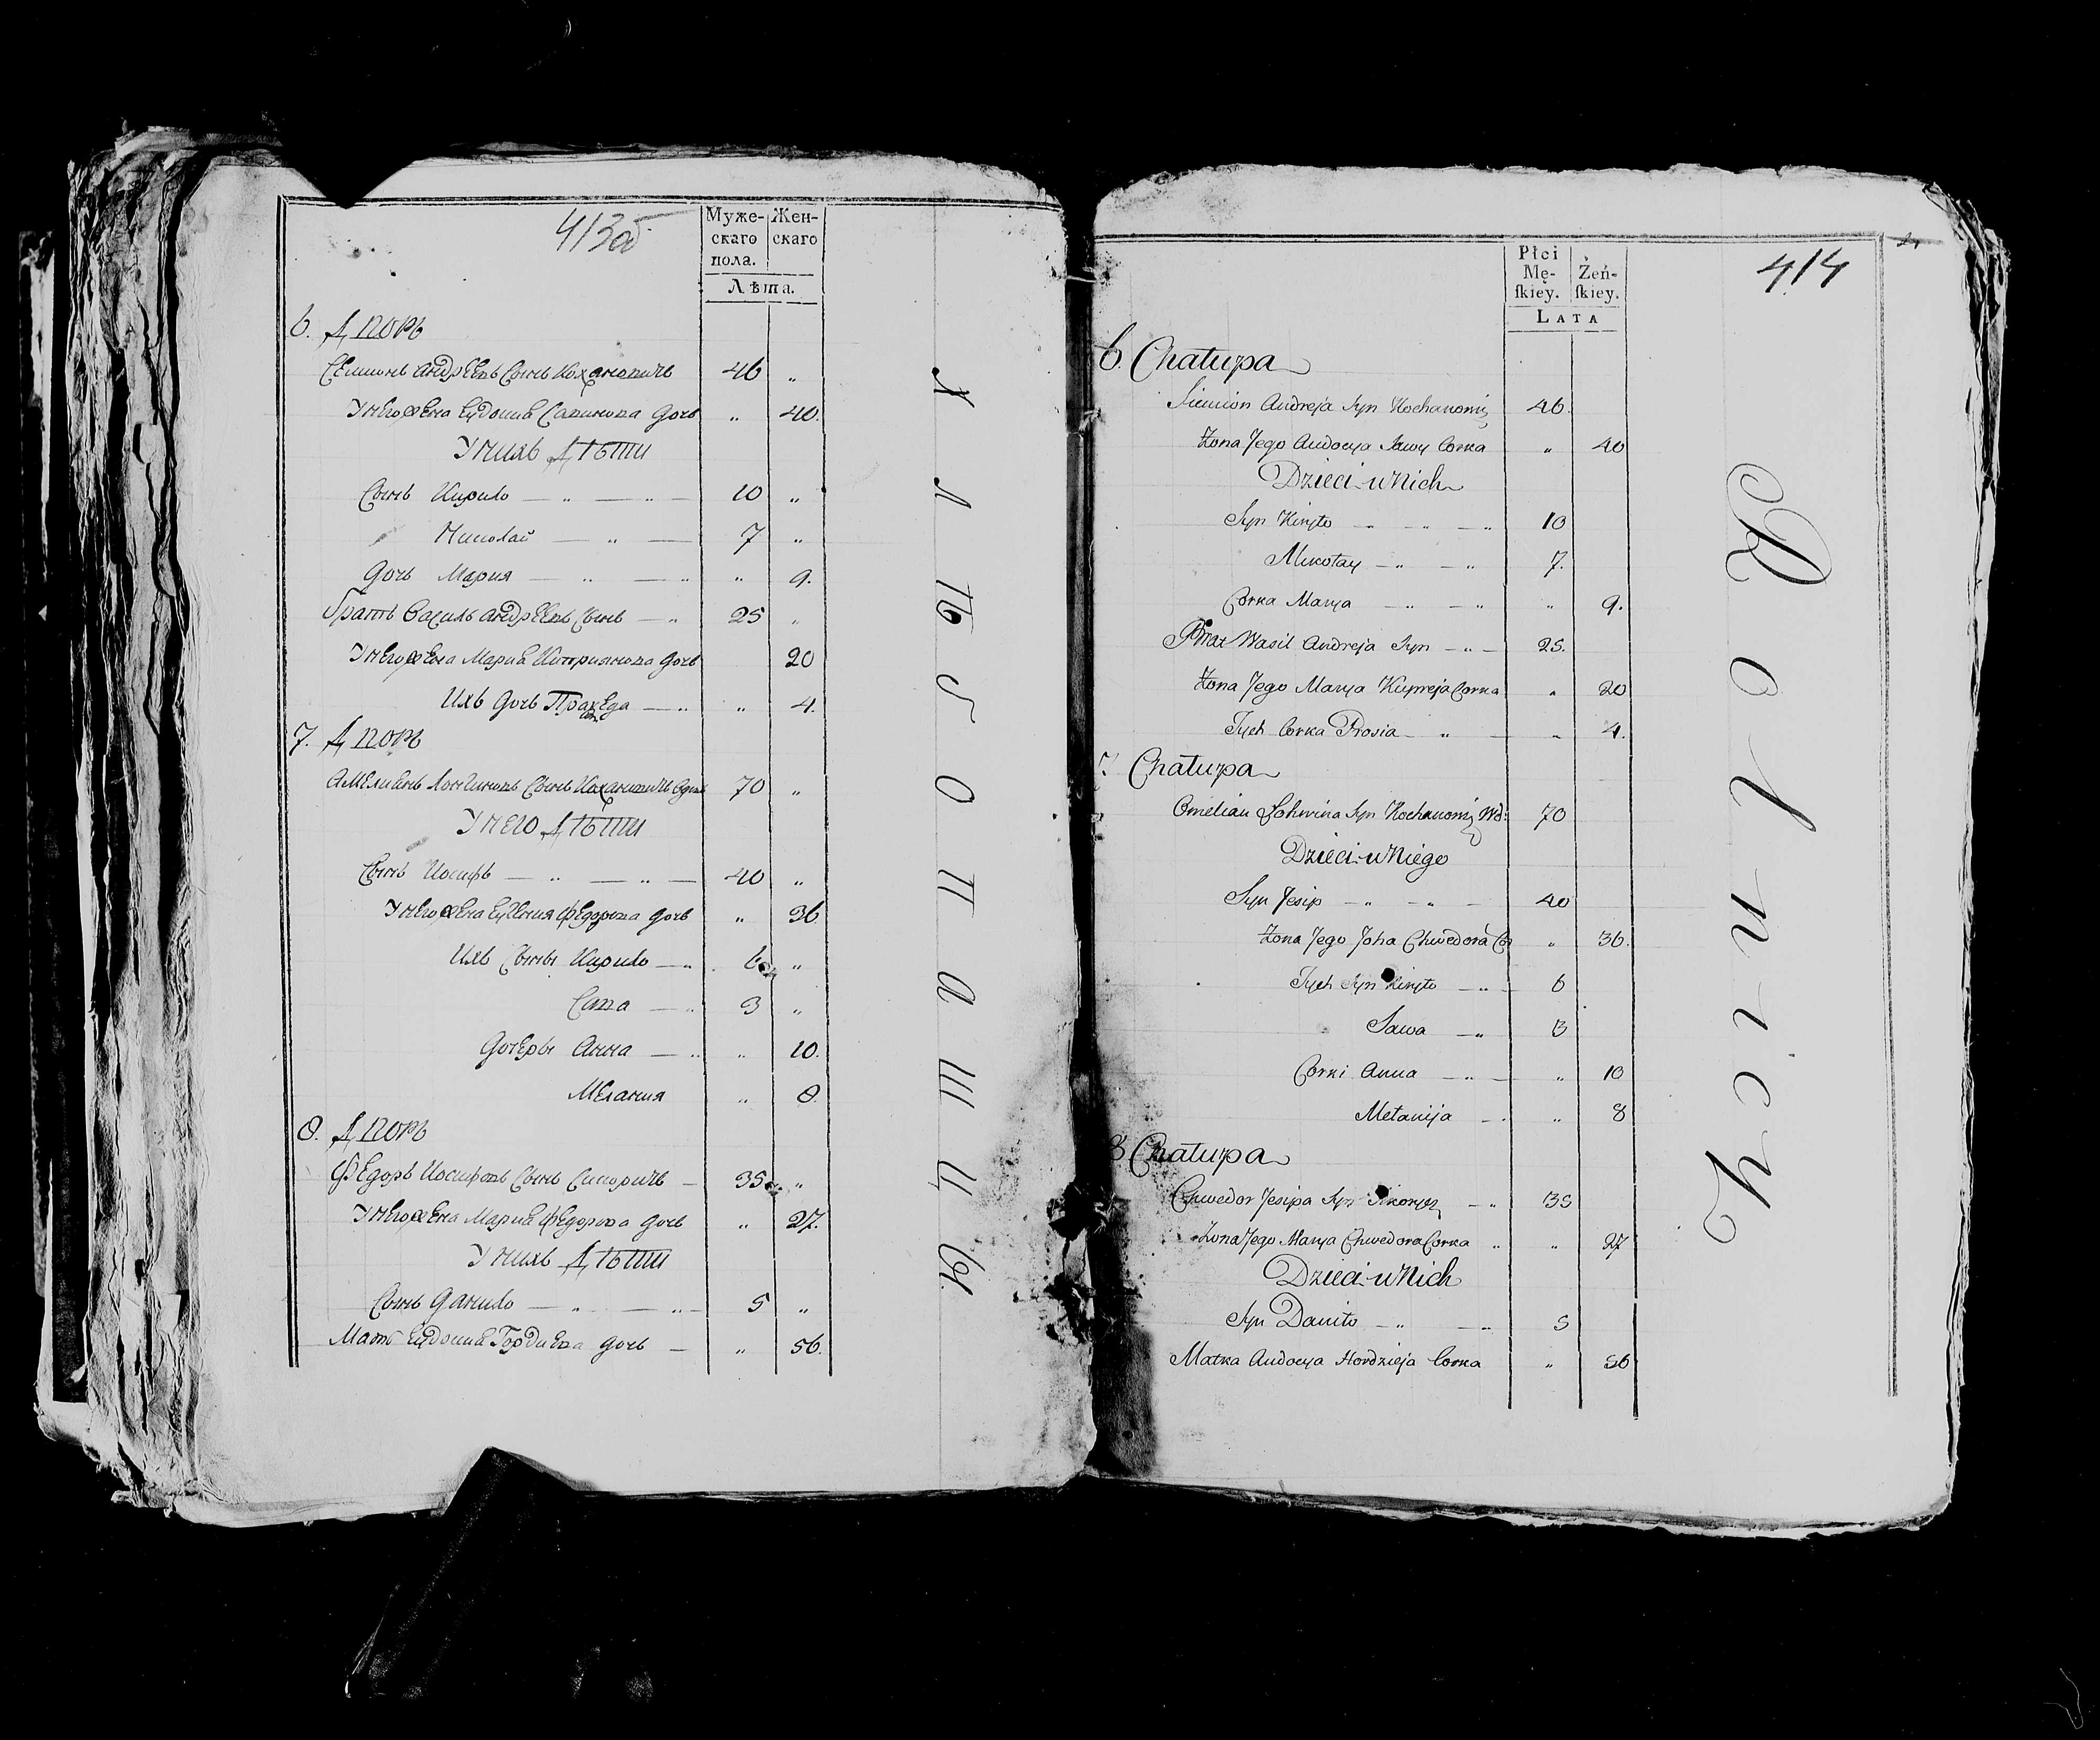 413об
Муже- Жен-
скаго скаго
пола.
Лѣта.
6. Дворъ
Семионъ Андреевъ Сынъ Кохановичъ 46 "
У него жена Евдокия Савинова дочь " 40.
У нихъ Дѣти
Сынъ Кирило — " — " — 10 "
Николай — " — 7 "
Дочь Мария — " — " " 9.
Братъ Василь Андреевъ Сынъ — " 25 "
У него жена Мария Киприянова дочь 20
Ихъ дочь Пракседа — " " 4.
7. Дворъ
Амелиянъ Лонгиновъ Сынъ Кохановичъ вдовъ 70 "
У него Дѣти
Сынъ Иосифъ — " — " — 40 "
У него жена Евгения Федорова дочь " 36.
Ихъ Сыны Кирило — " 6 "
Сава — " 3 "
Дочеры Анна — " " 10.
Мелания " 8.
8. Дворъ
Федоръ Иосифовъ Сынъ Сикоричъ — 35 "
У него жена Мария Федорова дочь " 27.
У нихъ Дѣти
Сынъ Данило — " — " — 5 "
Мать Евдокия Гордиева дочь — " 56.
Хлѣбопашцы
414
Płci
Mę- Żeń-
ſkiey. ſkiey.
LATA
6. Chałupa
Siemion Andreja Syn Kochanowicz 46.
Żona Jego Audocya Sawy Corka " 40
Dzieci u Nich
Syn Kiryło — " — " 10
Mikołay — " — " 7.
Corka Marya — " — " " 9.
Brat Wasil Andreja Syn — " — 25.
Żona Jego Marya Kupreja Corka " 20
Tych Corka Prosia — " — " 4.
7. Chałupa
Omelian Łohwina Syn Kochanowicz Wd: 70
Dzieci u Niego
Syn Jesip — " — " — 40
Żona Jego Joha Chwedora Cor " 36.
Tych Syn Kiryło — " — 6
Sawa — " 3
Corki Anna — " — " 10
Mełanija — " " 8
8 Chałupa
Chwedor Jesipa Syn Sikorycz — " 35
Żona Jego Marya Chwedora Corka " " 27
Dzieci u Nich
Syn Daniło — " — " 5
Matka Audocya Hordzieja Corka " 56
Rolnicy